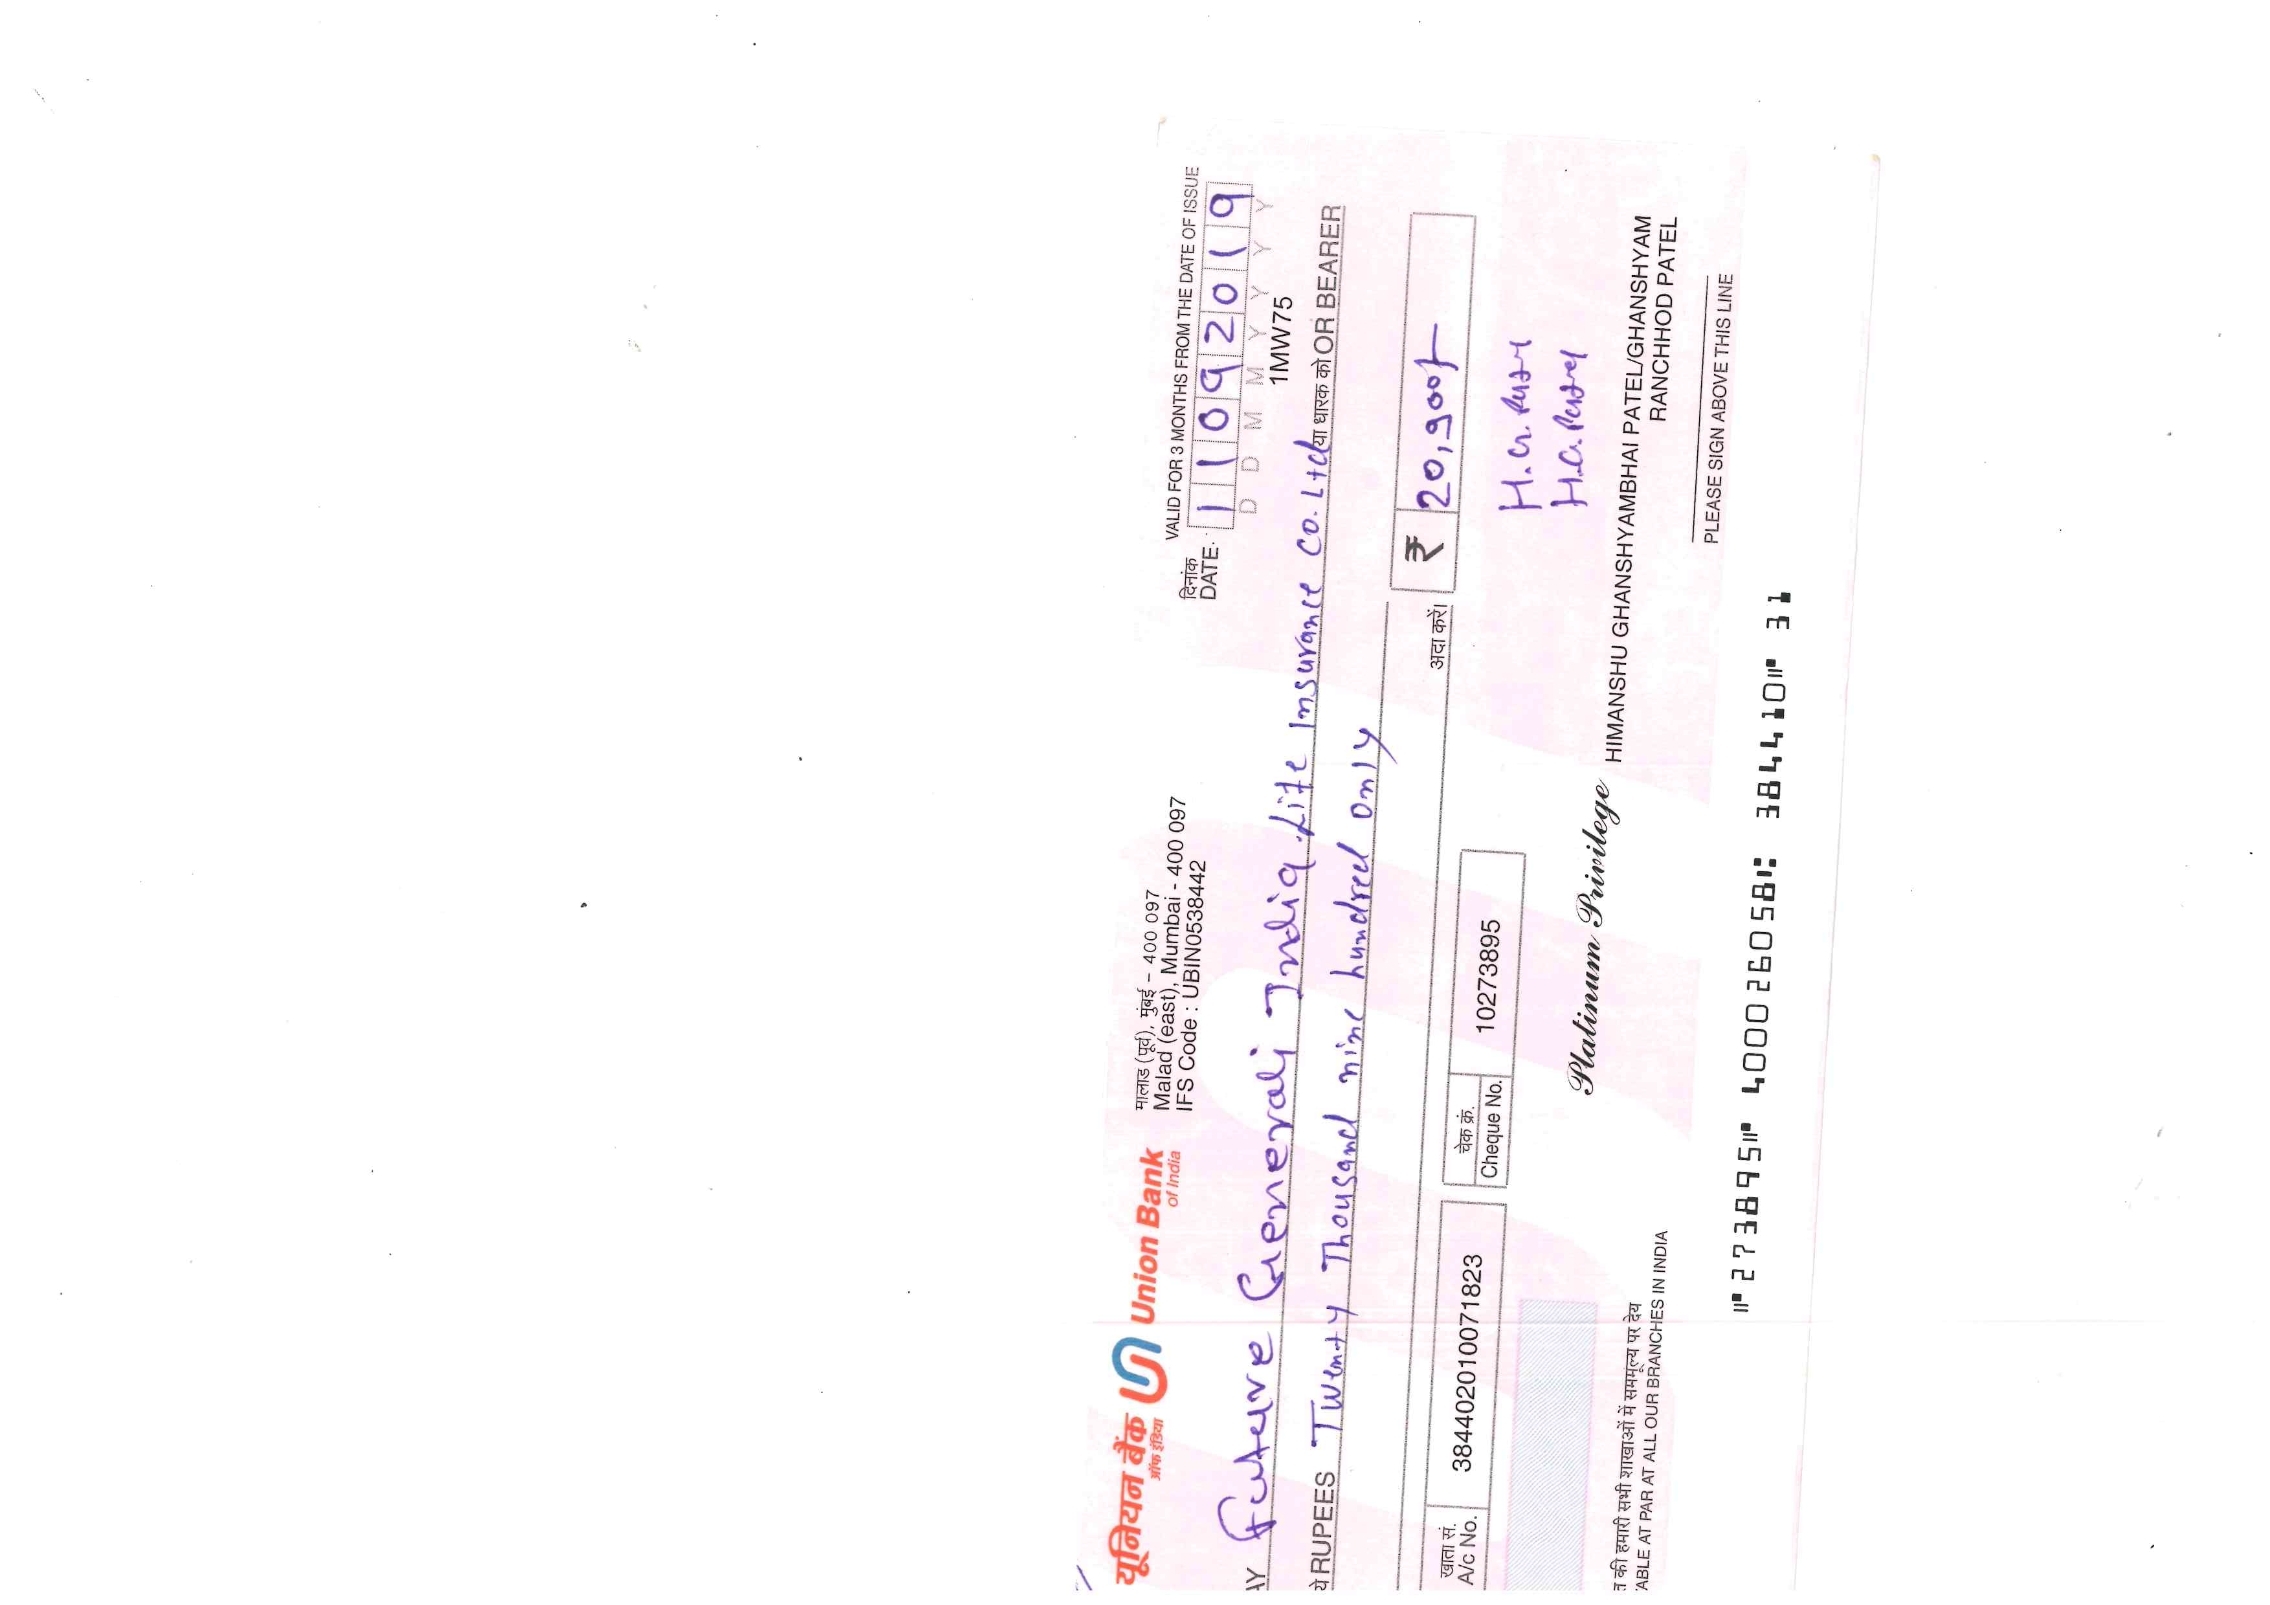 यूनियन बैंक Union Bank
ऑफ इंडिया of India
मालाड (पूर्व), मुंबई - 400 097
Malad (east), Mumbai - 400 097
IFS Code : UBIN0538442
VALID FOR 3 MONTHS FROM THE DATE OF ISSUE
दिनांक
DATE. 11092019
D D M M Y Y Y Y
1MW75
AY Future Generali India Life Insurance Co. Ltd या धारक को OR BEARER
ये RUPEES Twenty Thousand nine hundred only
अदा करें। ₹ 20,900/-
खाता सं.
A/c No. 384402010071823
चेक क्रं.
Cheque No. 10273895
H.G. Patel
H.G. Patel
Platinum Privilege HIMANSHU GHANSHYAMBHAI PATEL/GHANSHYAM
RANCHHOD PATEL
त की हमारी सभी शाखाओं में सममूल्य पर देय
ABLE AT PAR AT ALL OUR BRANCHES IN INDIA
PLEASE SIGN ABOVE THIS LINE
⑈273895⑈ 400026058⑆ 384410⑈ 31